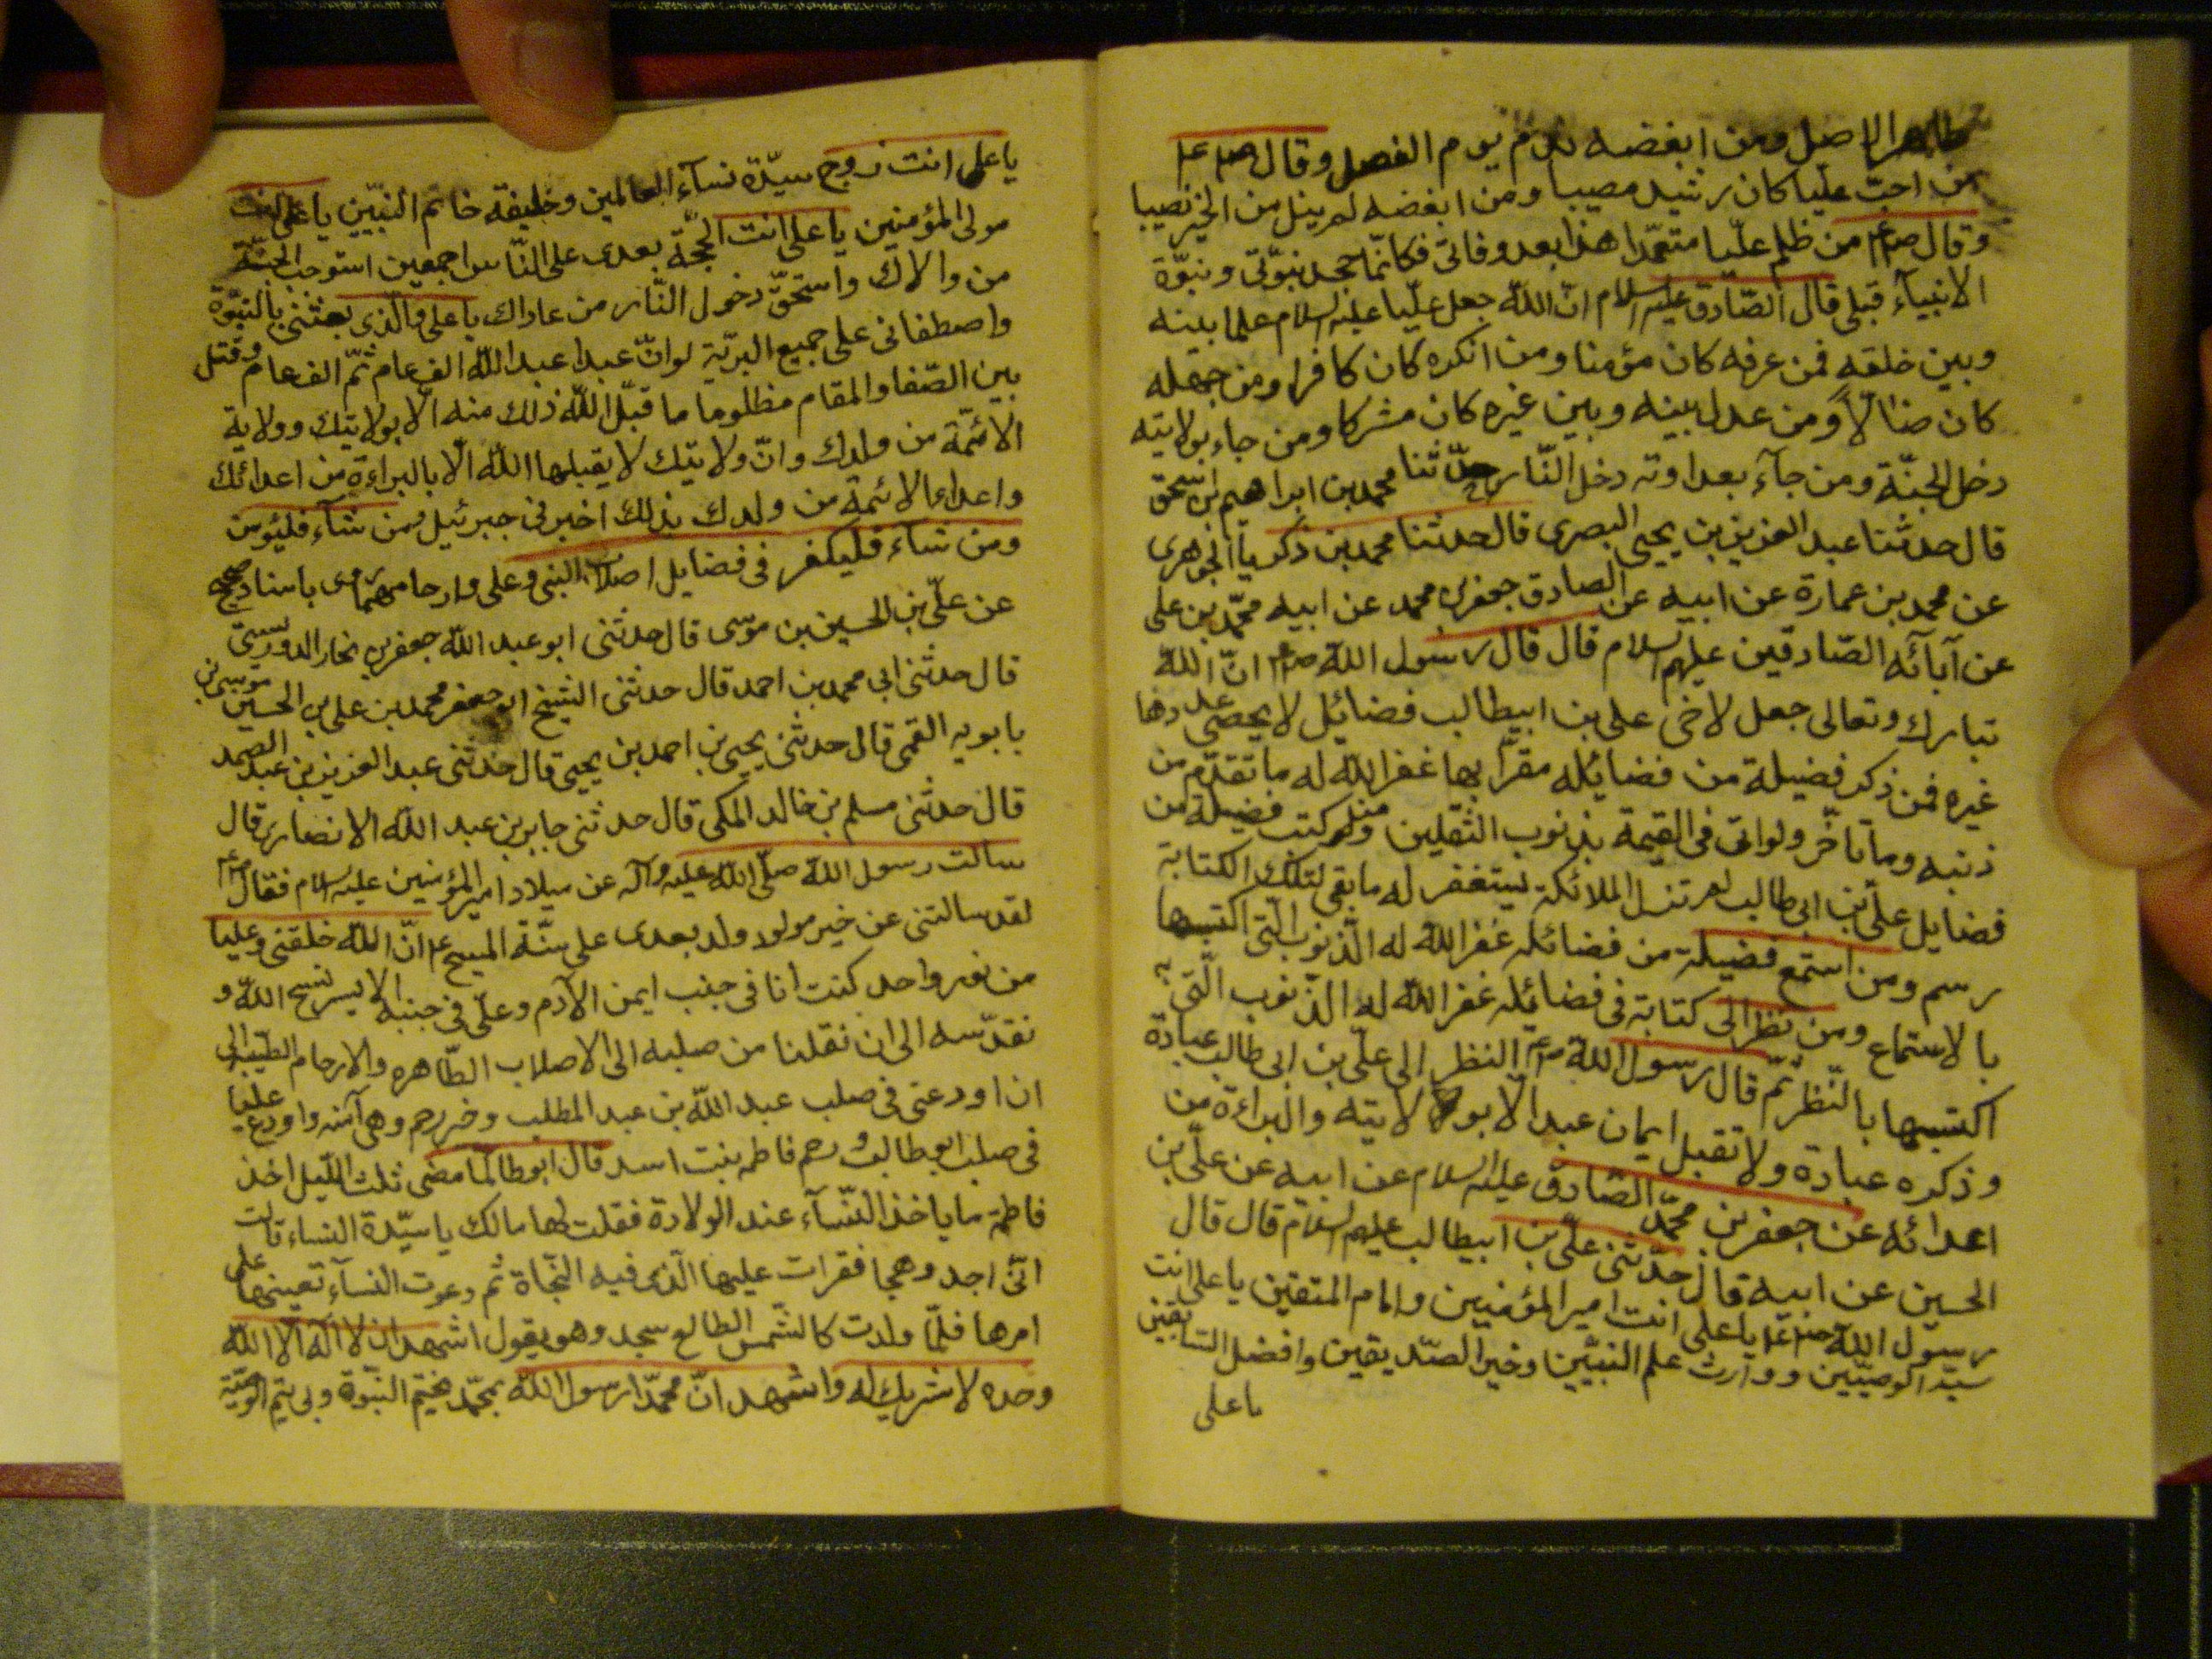 طاهر الاصل ومن ابغضه ندم يوم الفصل وقال صلعم
من احبّ عليّا كان رشيد مصيبا ومن ابغضه لم ينل من الخير نصيبا
وقال صلعم من ظلم عليّا متعمّدا هذا بعد وفاتى فكانّما جحد نبوّتى ونبوّة
الانبيآء قبلى قال الصّادق عليه السلام انّ اللّه جعل عليّا عليه السلام علما بينه
وبين خلقه فمن عرفه كان مؤمنا ومن انكره كان كافرا ومن جهله
كان ضالّا ومن عدل بينه وبين غيره كان مشركا ومن جاء بولايته
دخل الجنّة ومن جآء بعداوته دخل النّار حدّثنا محمد بن ابراهيم بن اسحق
قال حدثنا عبد العزيز بن يحيى البصرى قال حدثنا محمد بن زكريا الجوهرى
عن محمد بن عمارة عن ابيه عن الصادق جعفر بن محمد عن ابيه محمّد بن على
عن آبائه الصّادقين عليهم السلام قال قال رسول اللّه صلعم انّ اللّه
تبارك وتعالى جعل لاخى على بن ابيطالب فضائل لا يحصى عددها
غيره فمن ذكر فضيلة من فضائله مقرّا بها غفر اللّه له ما تقدّم من
ذنبه وما تأخّر ولو اتى فى القيمة بذنوب الثقلين ومن كتب فضيلة من
فضايل علىّ بن ابى طالب لم تزل الملائكة يستغفر له ما بقى لتلك الكتابة
رسم ومن استمع فضيلة من فضائله غفر اللّه له الذّنوب الّتى اكتسبها
بالاستماع ومن نظر الى كتابة فى فضائله غفر اللّه له الذّنوب الّتى
اكتسبها بالنّظر ثمّ قال رسول اللّه صلعم النظر الى علىّ بن ابى طالب عبادة
وذكره عبادة ولا تقبل ايمان عبد الّا بولايته والبراءة من
اعدائه عن جعفر بن محمّد الصّادق عليه السلام عن ابيه عن علىّ بن
الحسين عن ابيه قال حدّثنى علىّ بن ابيطالب عليهم السلام قال قال
رسول اللّه صلعم يا على انت امير المؤمنين وامام المتقين يا على انت
سيّد الوصيّين ووارث علم النبيّين وخير الصّديقين وافضل السّابقين
يا على
يا على انت زوج سيّدة نسآء العالمين وخليفة خاتم النبيّين يا على انت
مولى المؤمنين يا على انت الحجّة بعدى على النّاس اجمعين استوجب الجنّة
من والاك واستحقّ دخول النّار من عاداك يا على والّذى بعثنى بالنبوّة
واصطفانى على جميع البريّة لو انّ عبدا عبد اللّه الف عام ثمّ الف عام وقتل
بين الصّفا والمقام مظلوما ما قبل اللّه ذلك منه الّا بولايتك وولاية
الائمّة من ولدك وانّ ولايتك لا يقبلها اللّه الّا بالبراءة من اعدائك
واعداء الائمة من ولدك بذلك اخبرنى جبرئيل فمن شآء فليؤمن
ومن شاء فليكفر فى فضايل اصلاب النبى وعلى وارحامهما باسناد صحيح
عن علىّ بن الحسين بن موسى قال حدثنى ابو عبد اللّه جعفر بن نجار الدوريستى
قال حدثنى ابى محمد بن احمد قال حدثنى الشيخ ابو جعفر محمد بن على بن الحسين بن موسى بن
بابويه القمى قال حدثنى يحيى بن احمد بن يحيى قال حدثنى عبد العزيز بن عبد الصمد
قال حدثنى مسلم بن خالد المكى قال حدثنى جابر بن عبد اللّه الانصارى قال
سالت رسول اللّه صلّى اللّه عليه وآله عن ميلاد امير المؤمنين عليه السلام فقال صلعم
لقد سالتنى عن خير مولود ولد بعدى على سنّة المسيح ع انّ اللّه خلقنى وعليا
من نور واحد كنت انا فى جنب ايمن الآدم وعلىّ فى جنبه الايسر نسبح اللّه و
نقدّسه الى ان نقلنا من صلبه الى الاصلاب الطّاهره والارحام الطيّبة الى
ان اودعنى فى صلب عبد اللّه بن عبد المطلب وخير رحم وهى آمنه واودع عليا
فى صلب ابو طالب ورحم فاطمه بنت اسد قال ابو طالب لما مضى ثلث اللّيل اخذ
فاطمة ما ياخذ النّسآء عند الولادة فقلت لها مالك يا سيّدة النساء قالت
انّى اجد وهجا فقرات عليها الّذى فيه النّجاة ثم دعوت النسآء تعينها على
امرها فلمّا ولدت كالشّمس الطالع سجد وهو يقول اشهد ان لا اله الّا اللّه
وحده لا شريك له واشهد انّ محمّدا رسول اللّه بمحمّد يختم النبّوة وبى يتم الوصيّة